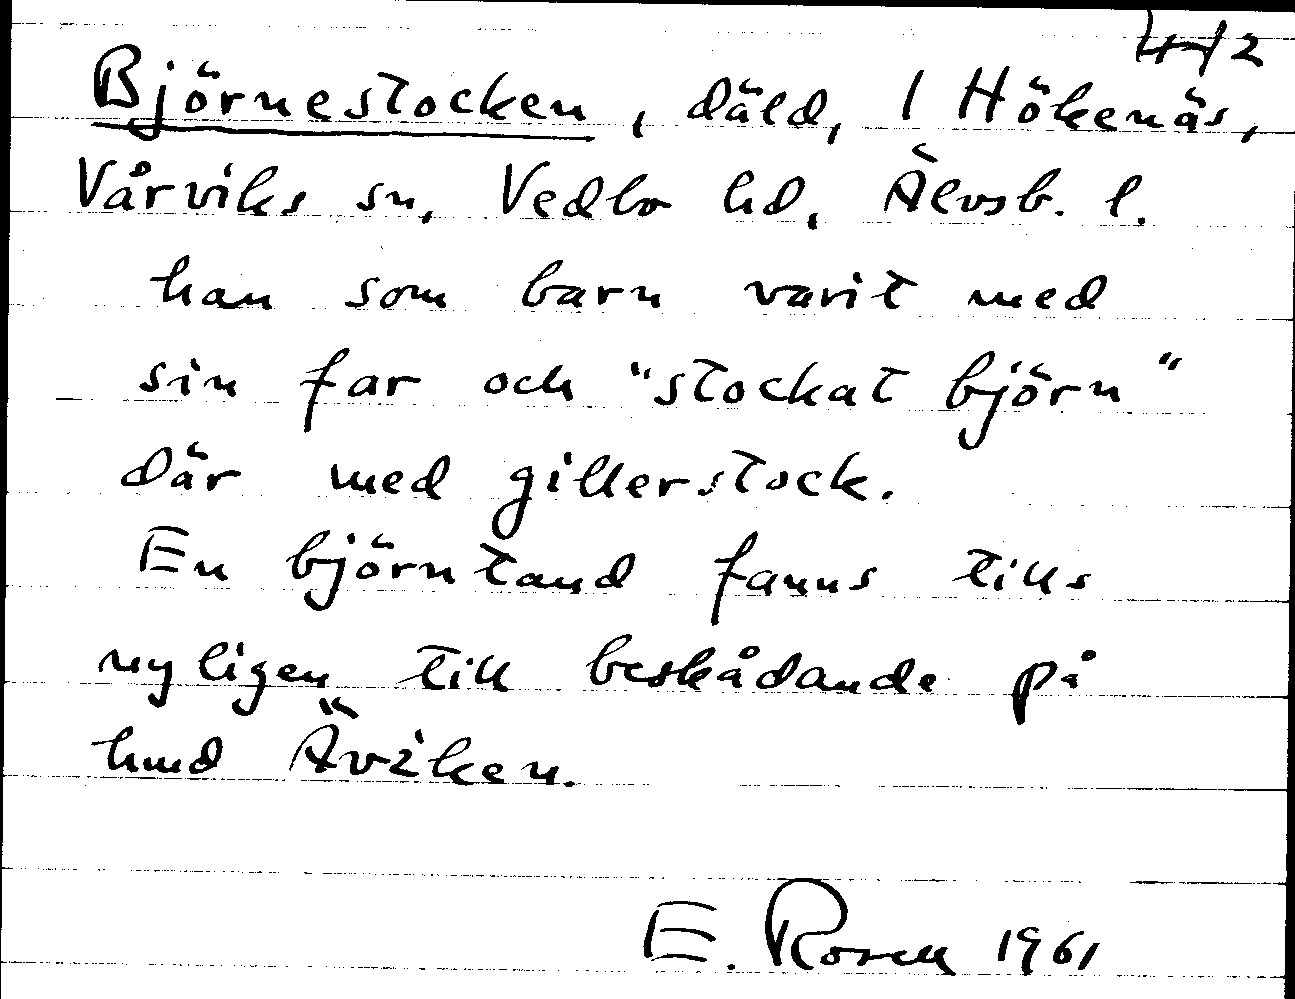 4/2
Björnestocken, däld, 1 Hökenäs,
Vårviks sn, Vedbo hd, Älvsb. l.
han som barn varit med
sin far och "stockat björn"
där med gillerstock.
En björntand fanns tills
nyligen till beskådande på
hmd Äviken.
E. Rosell 1961